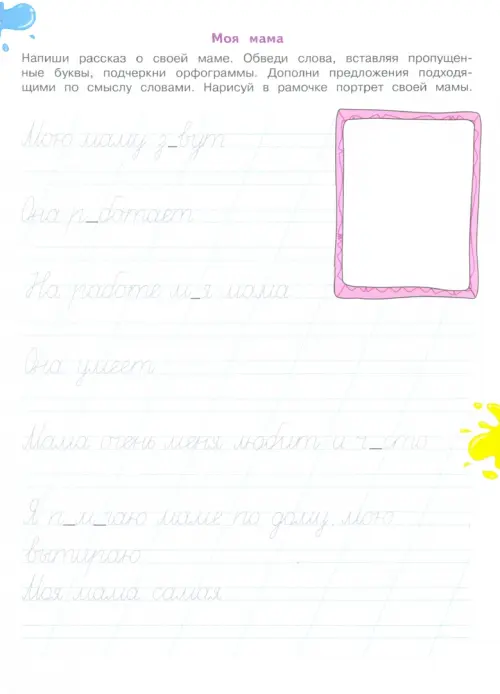 Моя мама
Напиши рассказ о своей маме. Обведи слова, вставляя пропущен-
ные буквы, подчеркни орфограммы. Дополни предложения подходя-
щими по смыслу словами. Нарисуй в рамочке портрет своей мамы.
Мою маму з_вут
Она р_ботает
На работе м_я мама
Она умеет
Мама очень меня любит и ч_сто
Я п_м_гаю маме по дому. Мою
вытираю
Моя мама самая